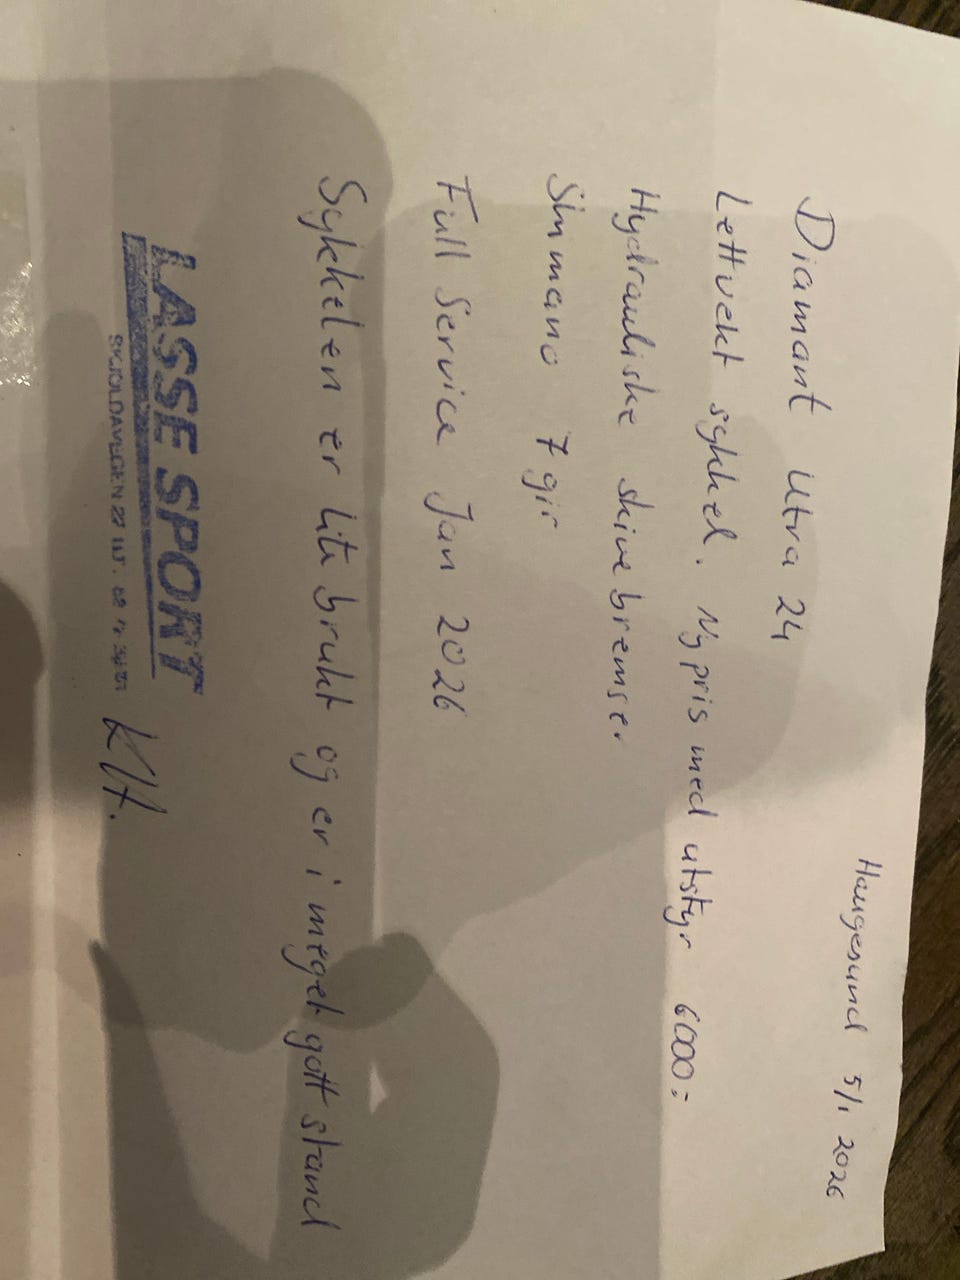 Haugesund 5/1 2026
Diamant Utra 24
Lettvekt sykkel. Nypris med utstyr 6000:-
Hydrauliske skivebremser
Shimano 7 gir
Full Service Jan 2026
Sykkelen er lite brukt og er i meget gott stand
LASSE SPORT
SKJOLDAVEGEN 27
KH.